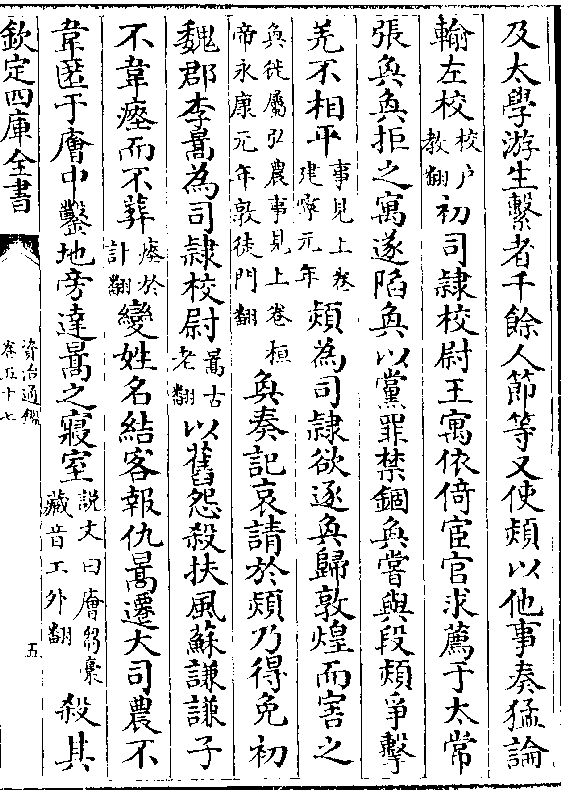 及太學游生繫者千餘人節等又使熲以他事奏猛論
輸左校校户教翻初司隸校尉王寓依倚宦官求薦于太常
張奐奐拒之寓遂陷奐以黨罪禁錮奐嘗與段熲爭擊
羌不相平事見上卷建寧元年熲為司隸欲逐奐歸敦煌而害之
奐徙屬弘農事見上卷桓帝永康元年敦徒門翻奐奏記哀請於熲乃得免初
魏郡李暠為司隸校尉暠古老翻以舊怨殺扶風蘇謙謙子
不韋瘞而不葬瘞於計翻變姓名結客報仇暠遷大司農不
韋匿于廥中鑿地旁達暠之寢室説文曰廥芻槀藏音工外翻殺其
欽定四庫全書
資治通鑑
卷五十七
五